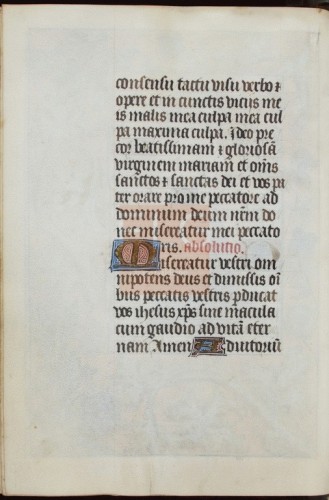 consensu tactu visu verbo ⁊
opere et in cunctis viciis me
is malis mea culpa mea cul
pa maxima culpa. Ideo pre
cor beatissimam ⁊ gloriosā
virginem mariam et om̄s
sanctos ⁊ sanctas dei et vos pa
ter orare pro me peccatore ad
dominum deum nr̄m do
nec misereatur mei peccato
ris. absolutio.
Misereatur vestri om
nipotens deus et dimissis oī
bus peccatis vestris p̄ducat
vos ihesus xp̄s sine macula
cum gaudio ad vitā eter
nam. Amen Adiutoriū